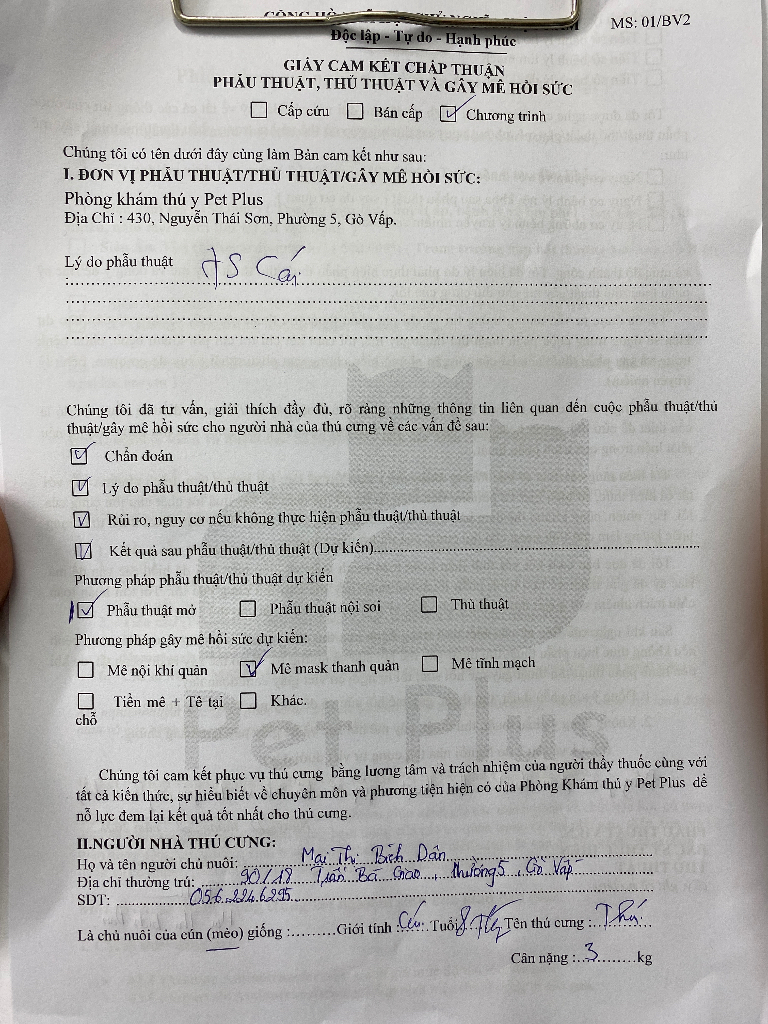 MS: 01/BV2
Độc lập - Tự do - Hạnh phúc
GIẤY CAM KẾT CHẤP THUẬN
PHẪU THUẬT, THỦ THUẬT VÀ GÂY MÊ HỒI SỨC
Cấp cứu Bán cấp Chương trình
Chúng tôi có tên dưới đây cùng làm Bản cam kết như sau:
I. ĐƠN VỊ PHẪU THUẬT/THỦ THUẬT/GÂY MÊ HỒI SỨC:
Phòng khám thú y Pet Plus
Địa Chỉ : 430, Nguyễn Thái Sơn, Phường 5, Gò Vấp.
Lý do phẫu thuật TS Cái
Chúng tôi đã tư vấn, giải thích đầy đủ, rõ ràng những thông tin liên quan đến cuộc phẫu thuật/thủ
thuật/gây mê hồi sức cho người nhà của thú cưng về các vấn đề sau:
Chẩn đoán
Lý do phẫu thuật/thủ thuật
Rủi ro, nguy cơ nếu không thực hiện phẫu thuật/thủ thuật
Kết quả sau phẫu thuật/thủ thuật (Dự kiến)
Phương pháp phẫu thuật/thủ thuật dự kiến
Phẫu thuật mở Phẫu thuật nội soi Thủ thuật
Phương pháp gây mê hồi sức dự kiến:
Mê nội khí quản Mê mask thanh quản Mê tĩnh mạch
Tiền mê + Tê tại Khác.
chỗ
Pet Plus
Chúng tôi cam kết phục vụ thú cưng bằng lương tâm và trách nhiệm của người thầy thuốc cùng với
tất cả kiến thức, sự hiểu biết về chuyên môn và phương tiện hiện có của Phòng Khám thú y Pet Plus để
nỗ lực đem lại kết quả tốt nhất cho thú cưng.
II.NGƯỜI NHÀ THÚ CƯNG:
Họ và tên người chủ nuôi: Mai Thị Bích Dân
Địa chỉ thường trú: 90/18 Trần Bá Giao, Phường 5, Gò Vấp
SDT: 056.224.6295
Là chủ nuôi của cún (mèo) giống : Giới tính : Cái Tuổi 8 Tên thú cưng :
Cân nặng : 3 kg